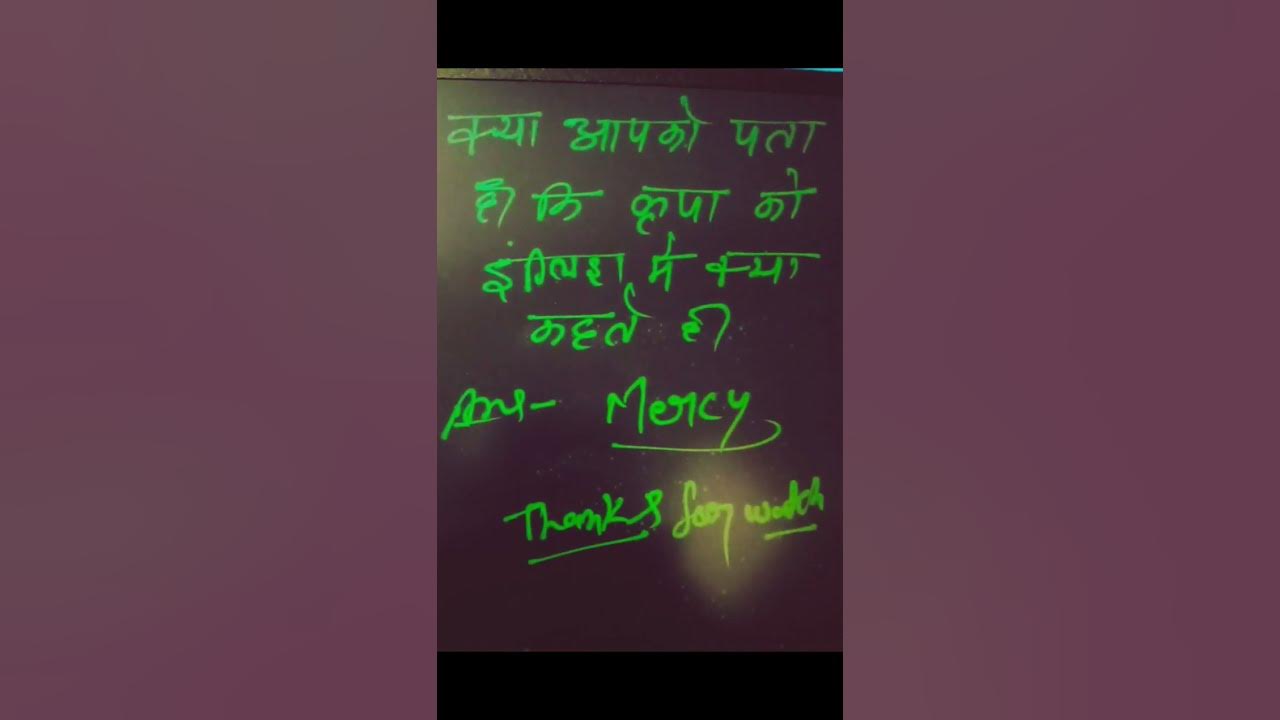 क्या आपको पता
ही कि कृपा को
इंग्लिश में क्या
कहते ही
Ans- Mercy
Thanks for watch